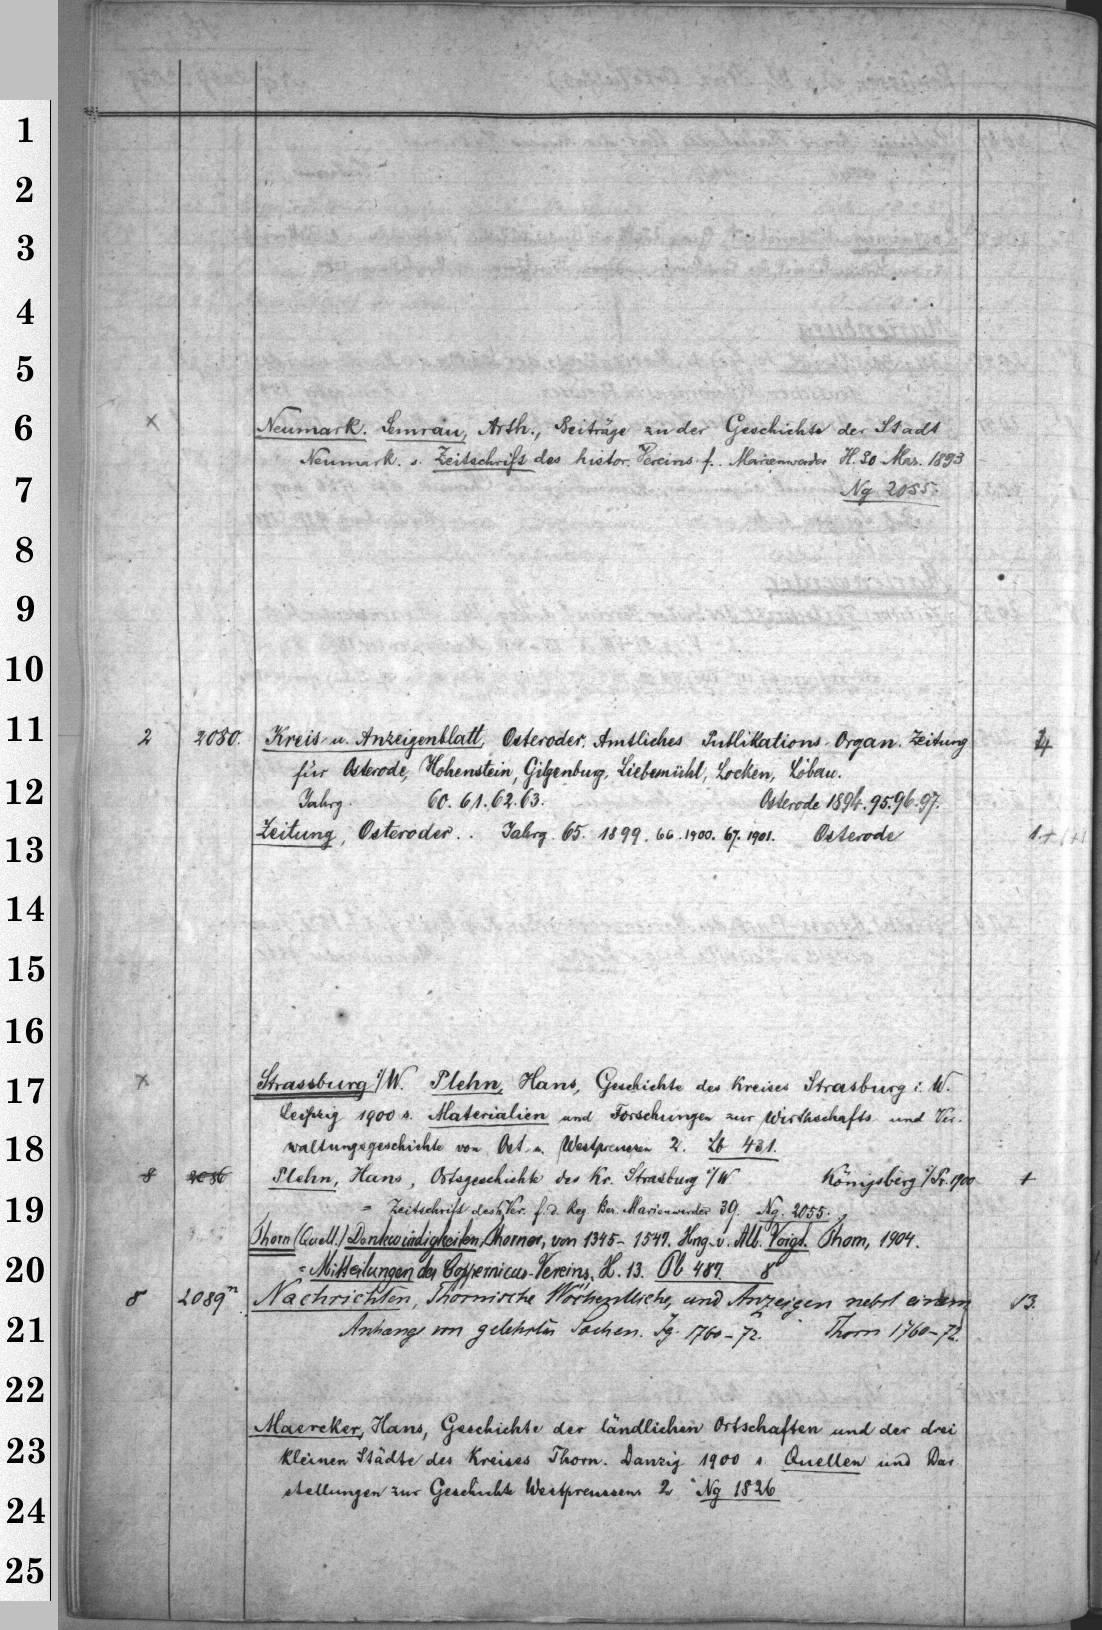 1
2
3
4
5
6
x Neumark. Semrau, Arth., Beiträge zu der Geschichte der Stadt
Neumark. s. Zeitschrift des histor. Vereins f. Marienwerder H. 30 Mar. 1893
7
Ng 2055.
8
9
10
11
2 2080. Kreis u. Anzeigenblatt, Osteroder. Amtliches Publikations-Organ. Zeitung
für Osterode, Hohenstein, Gilgenburg, Liebemühl, Locken, Löbau. 4
12
Jahrg. 60. 61. 62. 63. Osterode 1894. 95. 96. 97.
13
Zeitung, Osteroder.. Jahrg. 65. 1899. 66. 1900. 67. 1901. Osterode 1.+
14
15
16
17
x Strassburg i/W. Plehn, Hans, Geschichte des Kreises Strasburg i. W.
Leipzig 1900 s. Materialien und Forschungen zur Wirthschafts- und Ver-
18
waltungsgeschichte von Ost- u. Westpreussen 2. Lb 431.
8 2086 Plehn, Hans, Ortsgeschichte des Kr. Strasburg i/W Königsberg i/Pr. 1900 +
19
= Zeitschrift des h. Ver. f. d. Reg. Bez. Marienwerder 39. Ng. 2055.
Thorn (Quell.) Denkwürdigkeiten, Thorner, von 1345-1547. Hrg. v. Alb. Voigt. Thorn, 1904.
20
= Mitteilungen des Coppernicus-Vereins, H. 13. Pb 487 8°
8 2089n Nachrichten, Thornische Wöchentliche, und Anzeigen nebst einem 13.
21
Anhang von gelehrten Sachen. Jg. 1760-72. Thorn 1760-72.
22
23
Maercker, Hans, Geschichte der ländlichen Ortschaften und der drei
kleinen Städte des Kreises Thorn. Danzig 1900 s. Quellen und Dar-
24
stellungen zur Geschichte Westpreussens 2 Ng 1826
25